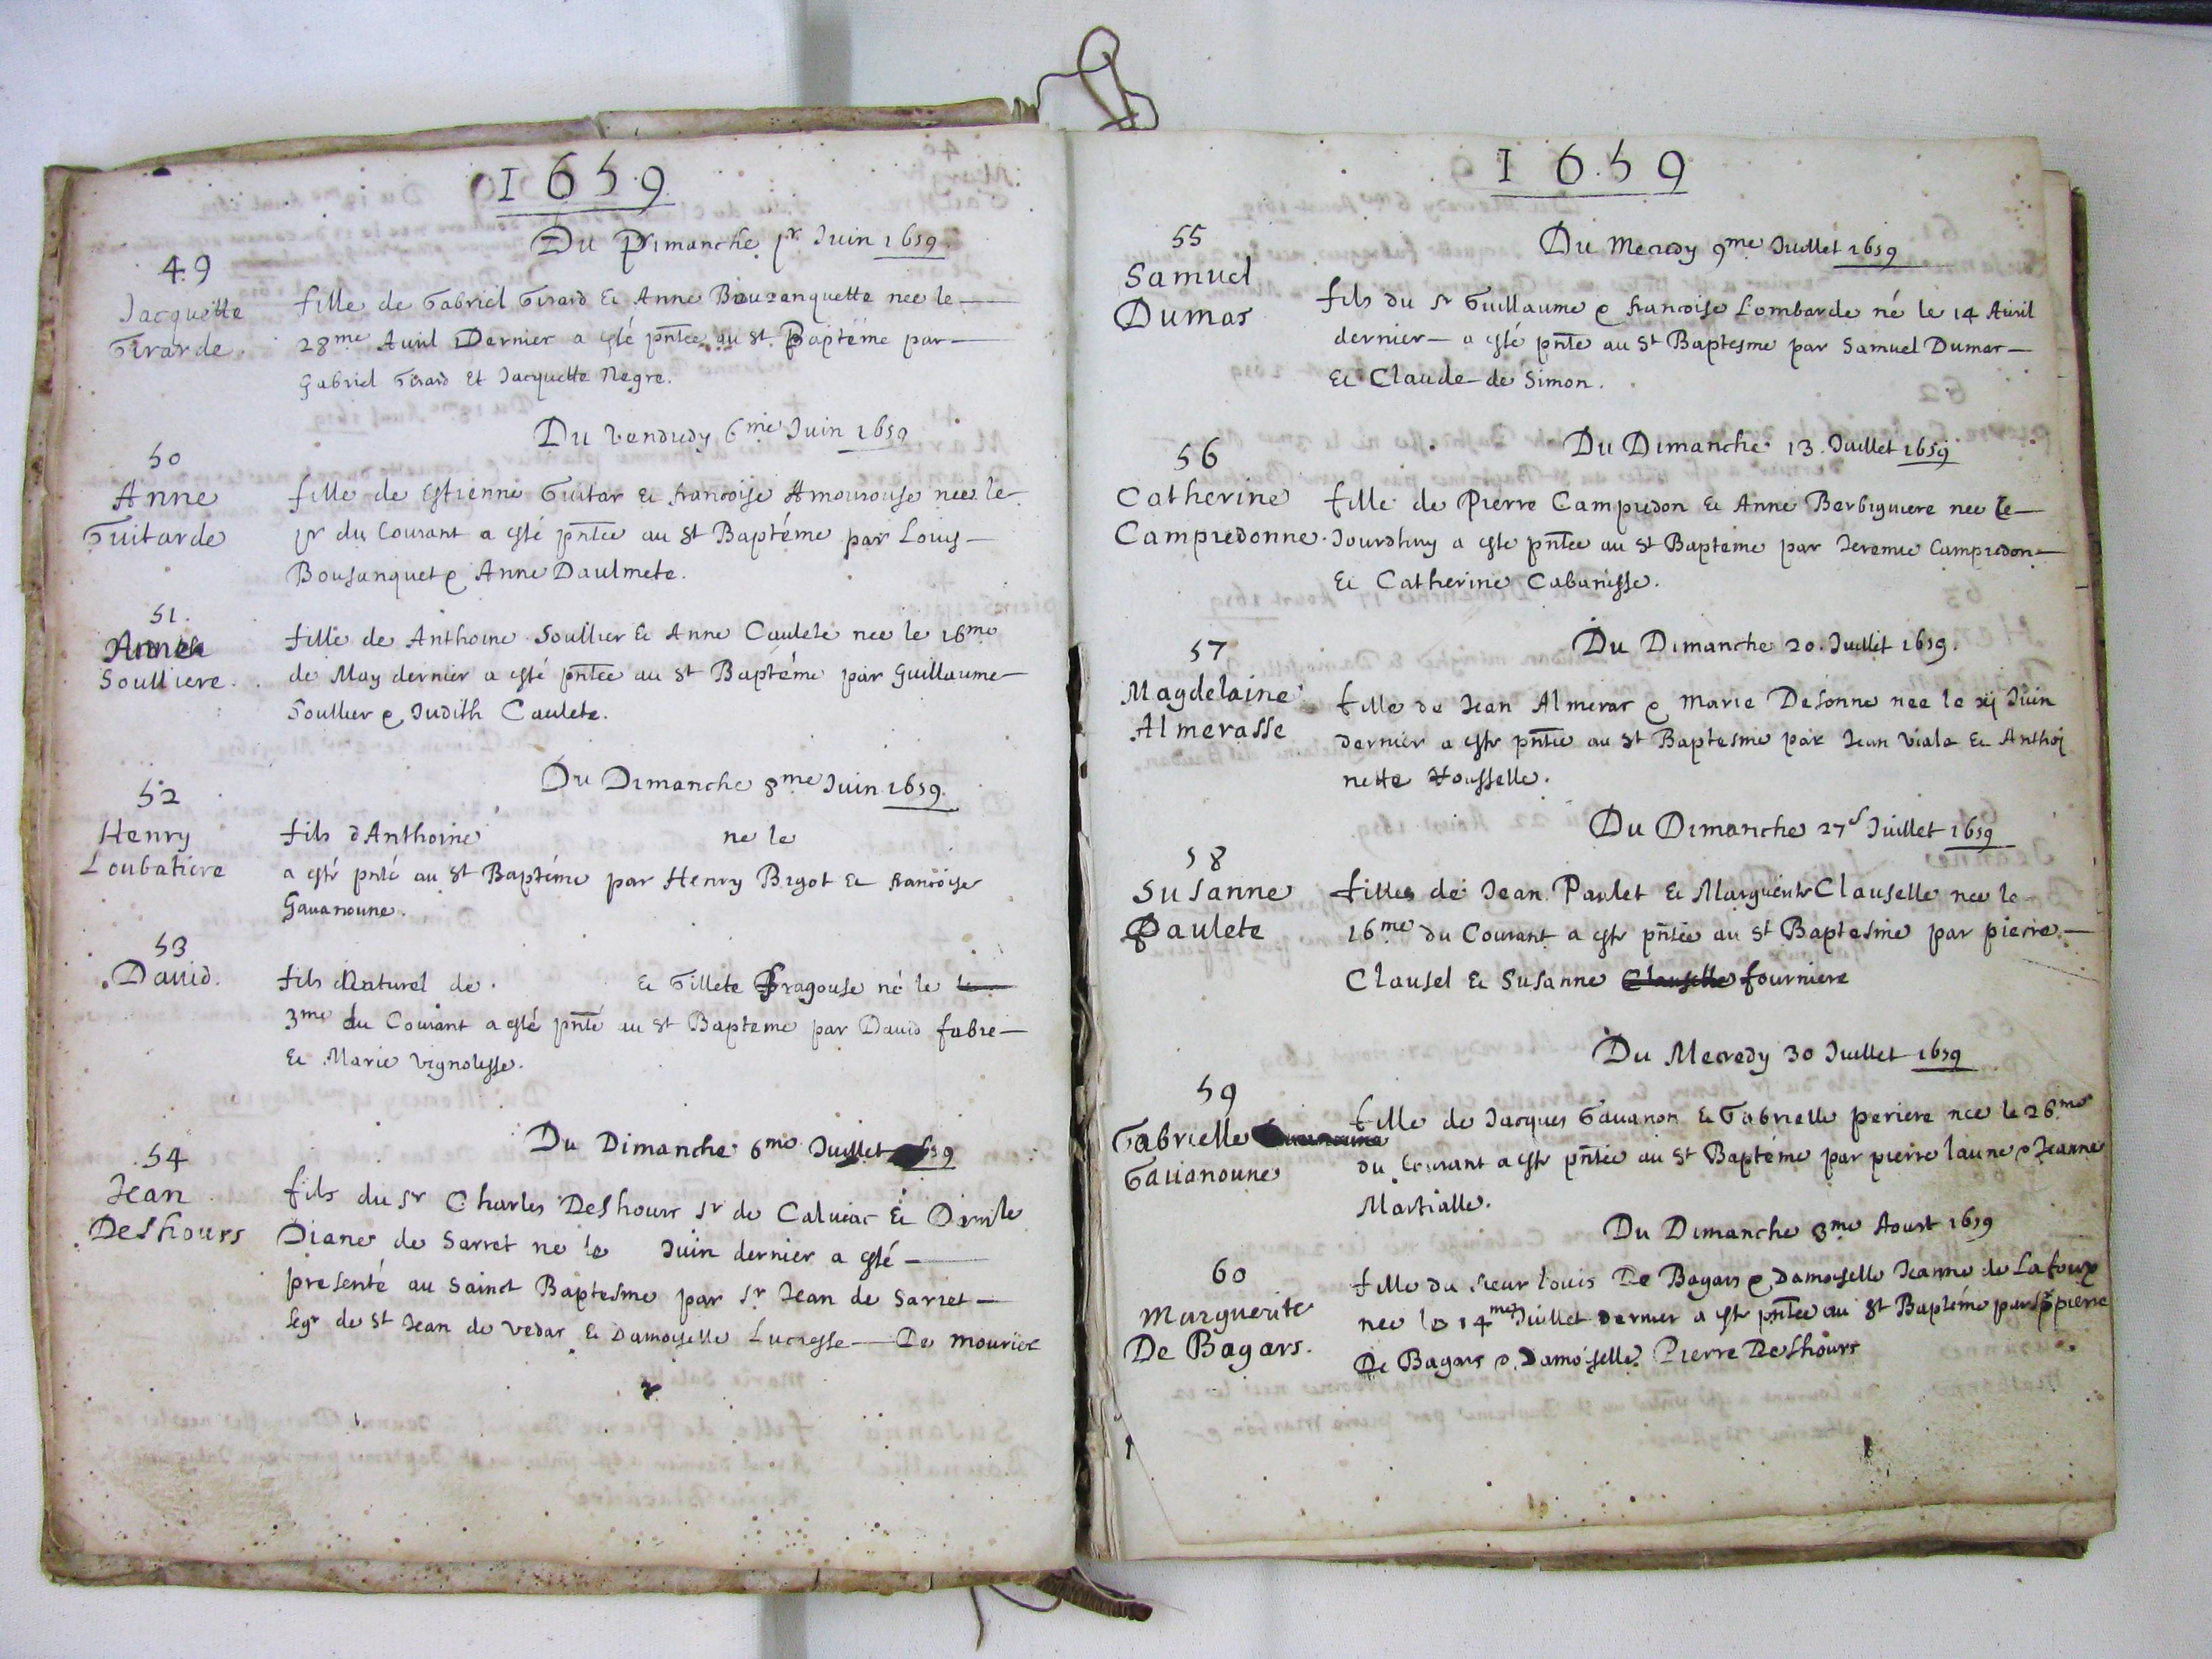 1659
Du Dimanche pr Juin 1659.
49
Jacquette
Girarde.
fille de Gabriel Girard Et Anne Bouzanquette nee le
28me Auril Dernier a esté pñtée au St. Baptéme par
Gabriel Girard Et Jacquette Negre.
Du Vendredy 6me Juin 1659
50
Anne
Guitarde
fille de Estienne Guitar Et francoise Amourouse nee le
pr du Courant a esté pñtée au St Baptéme par Louis
Bousanquet & Anne Daulmete.
51.
Soulliere.
fille de Anthoine Soullier Et Anne Caulete nee le 16me
de May dernier a esté pñtée au St Baptéme par Guillaume
Soullier & Judith Caulete.
Du Dimanche 8me Juin 1659.
52
Henry
Loubatiere
fils d'Anthoine ne le
a esté pñté au St Baptéme par Henry Bigot Et francoise
Gauanoune.
53
David.
fils Naturel de. Et Gillete Fragouse né le
3me du Courant a esté pñté au St Bapteme par David fabre
Et Marie Vignolesse.
Du Dimanche 6me Juillet 1659
54
Jean
Deshours
fils du Sr Charles Deshours Sr de Calviac Et Damlle
Diane de Sarret ne le Juin dernier a esté
presenté au Sainct Baptesme par Sr Jean de Sarret
Segr de St Jean de Vedas Et Damoiselle Lucresse De Mourier
1659
55
Samuel
Dumas
Du Mecredy 9me Juillet 1659
fils du Sr Guillaume & francoise Lombarde né le 14 Auril
dernier a esté pñte au St Baptesme par Samuel Dumas
Et Claude de Simon.
Du Dimanche 13. Juillet 1659
56
Catherine
Campredonne.
fille de Pierre Campredon Et Anne Berbiguiere nee le
Jourdhuy a este pñtée au St Bapteme par Jeremie Campredon
Et Catherine Cabanisse.
Du Dimanche 20. Juillet 1659.
57
Magdelaine
Almerasse
fille de Jean Almeras & Marie Desonne nee le xj Juin
dernier a este pñtée au St Baptesme par Jean Viala Et Anthoi
nette Rousselle.
Du Dimanche 27e Juillet 1659
58
Susanne
Paulete
filles de Jean Paulet Et Marguerite Clauselle nee le
16me du Courant a este pñtée au St Baptesme par pierre
Clausel Et Susanne Clauselle fourniere
Du Mecredy 30 Juillet 1659
59
Gabrielle
Gauanoune
fille de Jacques Gauanon Et Gabrielle periere nee le 26me
du Courant a este pñtée au St Baptéme par pierre laune & Jeanne
Martialle.
Du Dimanche 3me Aoust 1659
60
Marguerite
De Bagars.
fille du sieur Louis De Bagars & Damoiselle Jeanne de Lafoux
nee le 14me Juillet dernier a este pñtée au St Baptéme par Sr pierre
De Bagars & Damoiselle Pierre Deshours